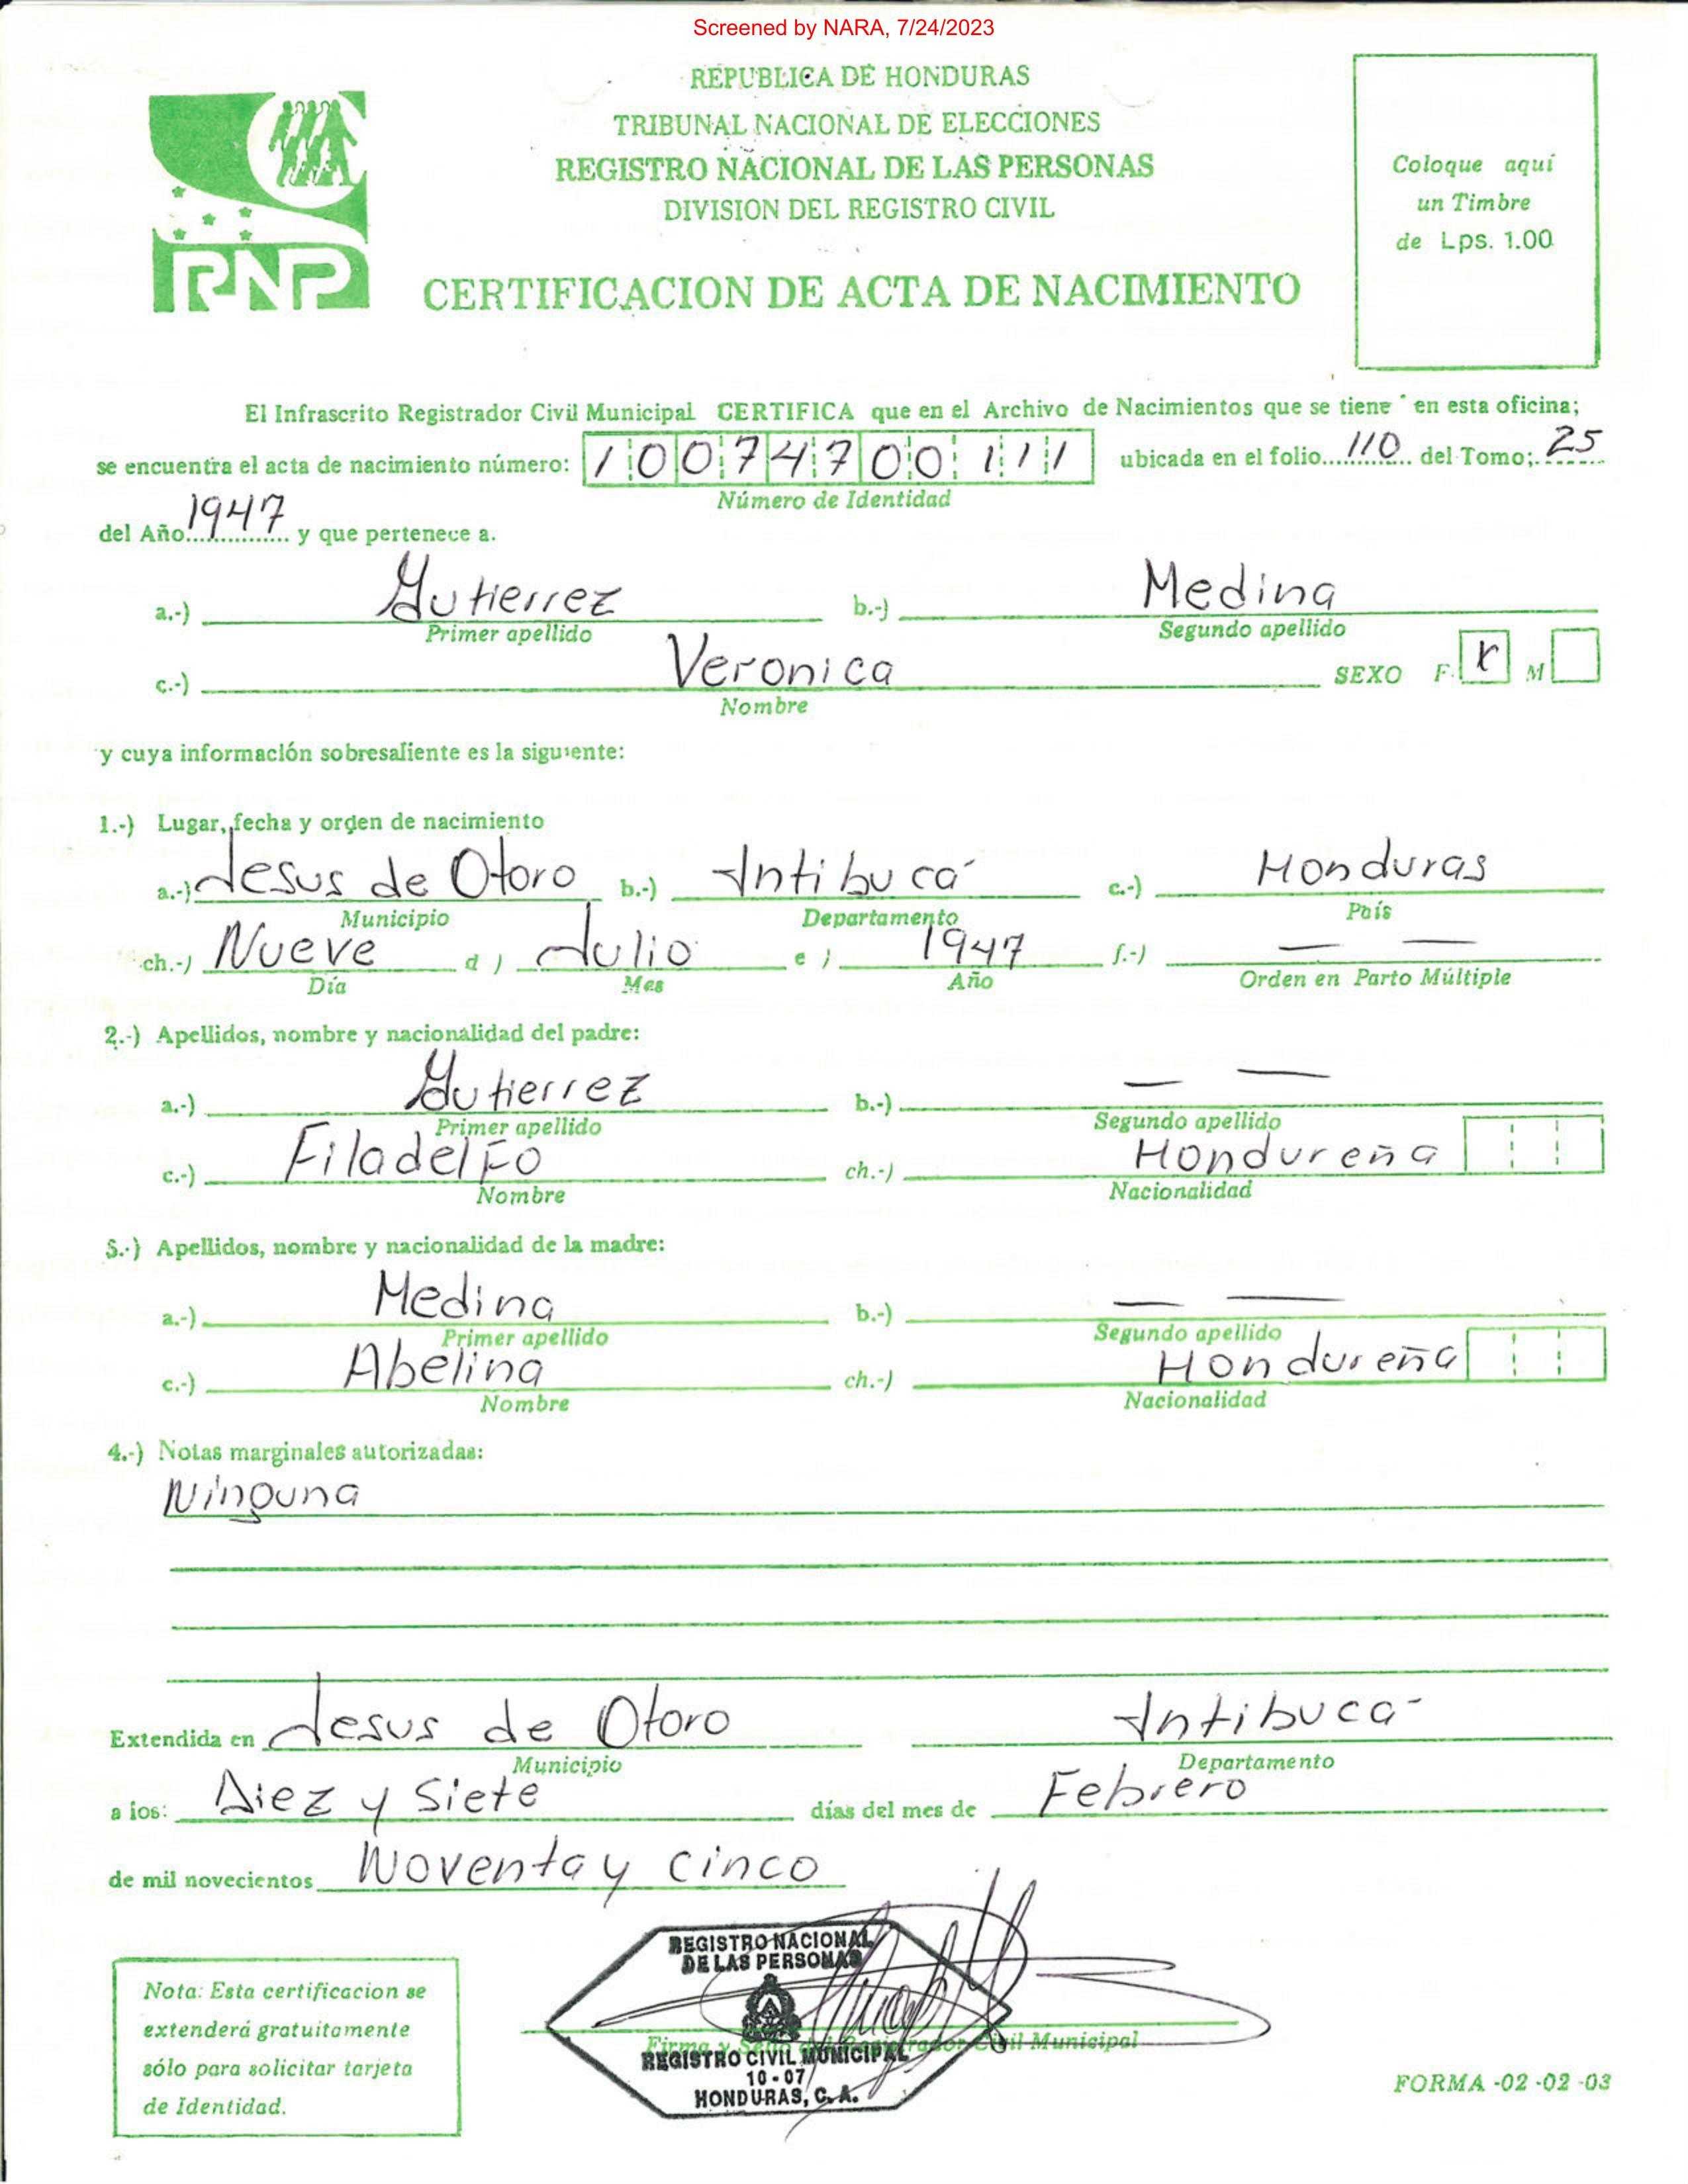 Screened by NARA, 7/24/2023
REPUBLICA DE HONDURAS
TRIBUNAL NACIONAL DE ELECCIONES
REGISTRO NACIONAL DE LAS PERSONAS
DIVISION DEL REGISTRO CIVIL
RNP
CERTIFICACION DE ACTA DE NACIMIENTO
Coloque aquí
un Timbre
de Lps. 1.00
El Infrascrito Registrador Civil Municipal CERTIFICA que en el Archivo de Nacimientos que se tiene en esta oficina;
se encuentra el acta de nacimiento número: 1007470011 1 ubicada en el folio 110 del Tomo; 25
Número de Identidad
del Año 1947 y que pertenece a.
a.-) Gutierrez b.-) Medina
Primer apellido Segundo apellido
c.-) Veronica SEXO F. X M
Nombre
y cuya información sobresaliente es la siguiente:
1.-) Lugar, fecha y orden de nacimiento
a.-) Jesus de Otoro b.-) Intibucá c.-) Honduras
Municipio Departamento País
ch.-) Nueve d ) Julio e ) 1947 f.-) — —
Día Mes Año Orden en Parto Múltiple
2.-) Apellidos, nombre y nacionalidad del padre:
a.-) Gutierrez b.-) — —
Primer apellido Segundo apellido
c.-) Filadelfo ch.-) Hondureña
Nombre Nacionalidad
3.-) Apellidos, nombre y nacionalidad de la madre:
a.-) Medina b.-) — —
Primer apellido Segundo apellido
c.-) Abelina ch.-) Hondureña
Nombre Nacionalidad
4.-) Notas marginales autorizadas:
Ninguna
Extendida en Jesus de Otoro Intibucá
Municipio Departamento
a los: Diez y Siete días del mes de Febrero
de mil novecientos Noventa y cinco
REGISTRO NACIONAL
DE LAS PERSONAS
Firma y Sello del Registrador Civil Municipal
REGISTRO CIVIL MUNICIPAL
10-07
HONDURAS, C. A.
Nota: Esta certificacion se
extenderá gratuitamente
sólo para solicitar tarjeta
de Identidad.
FORMA -02 -02 -03